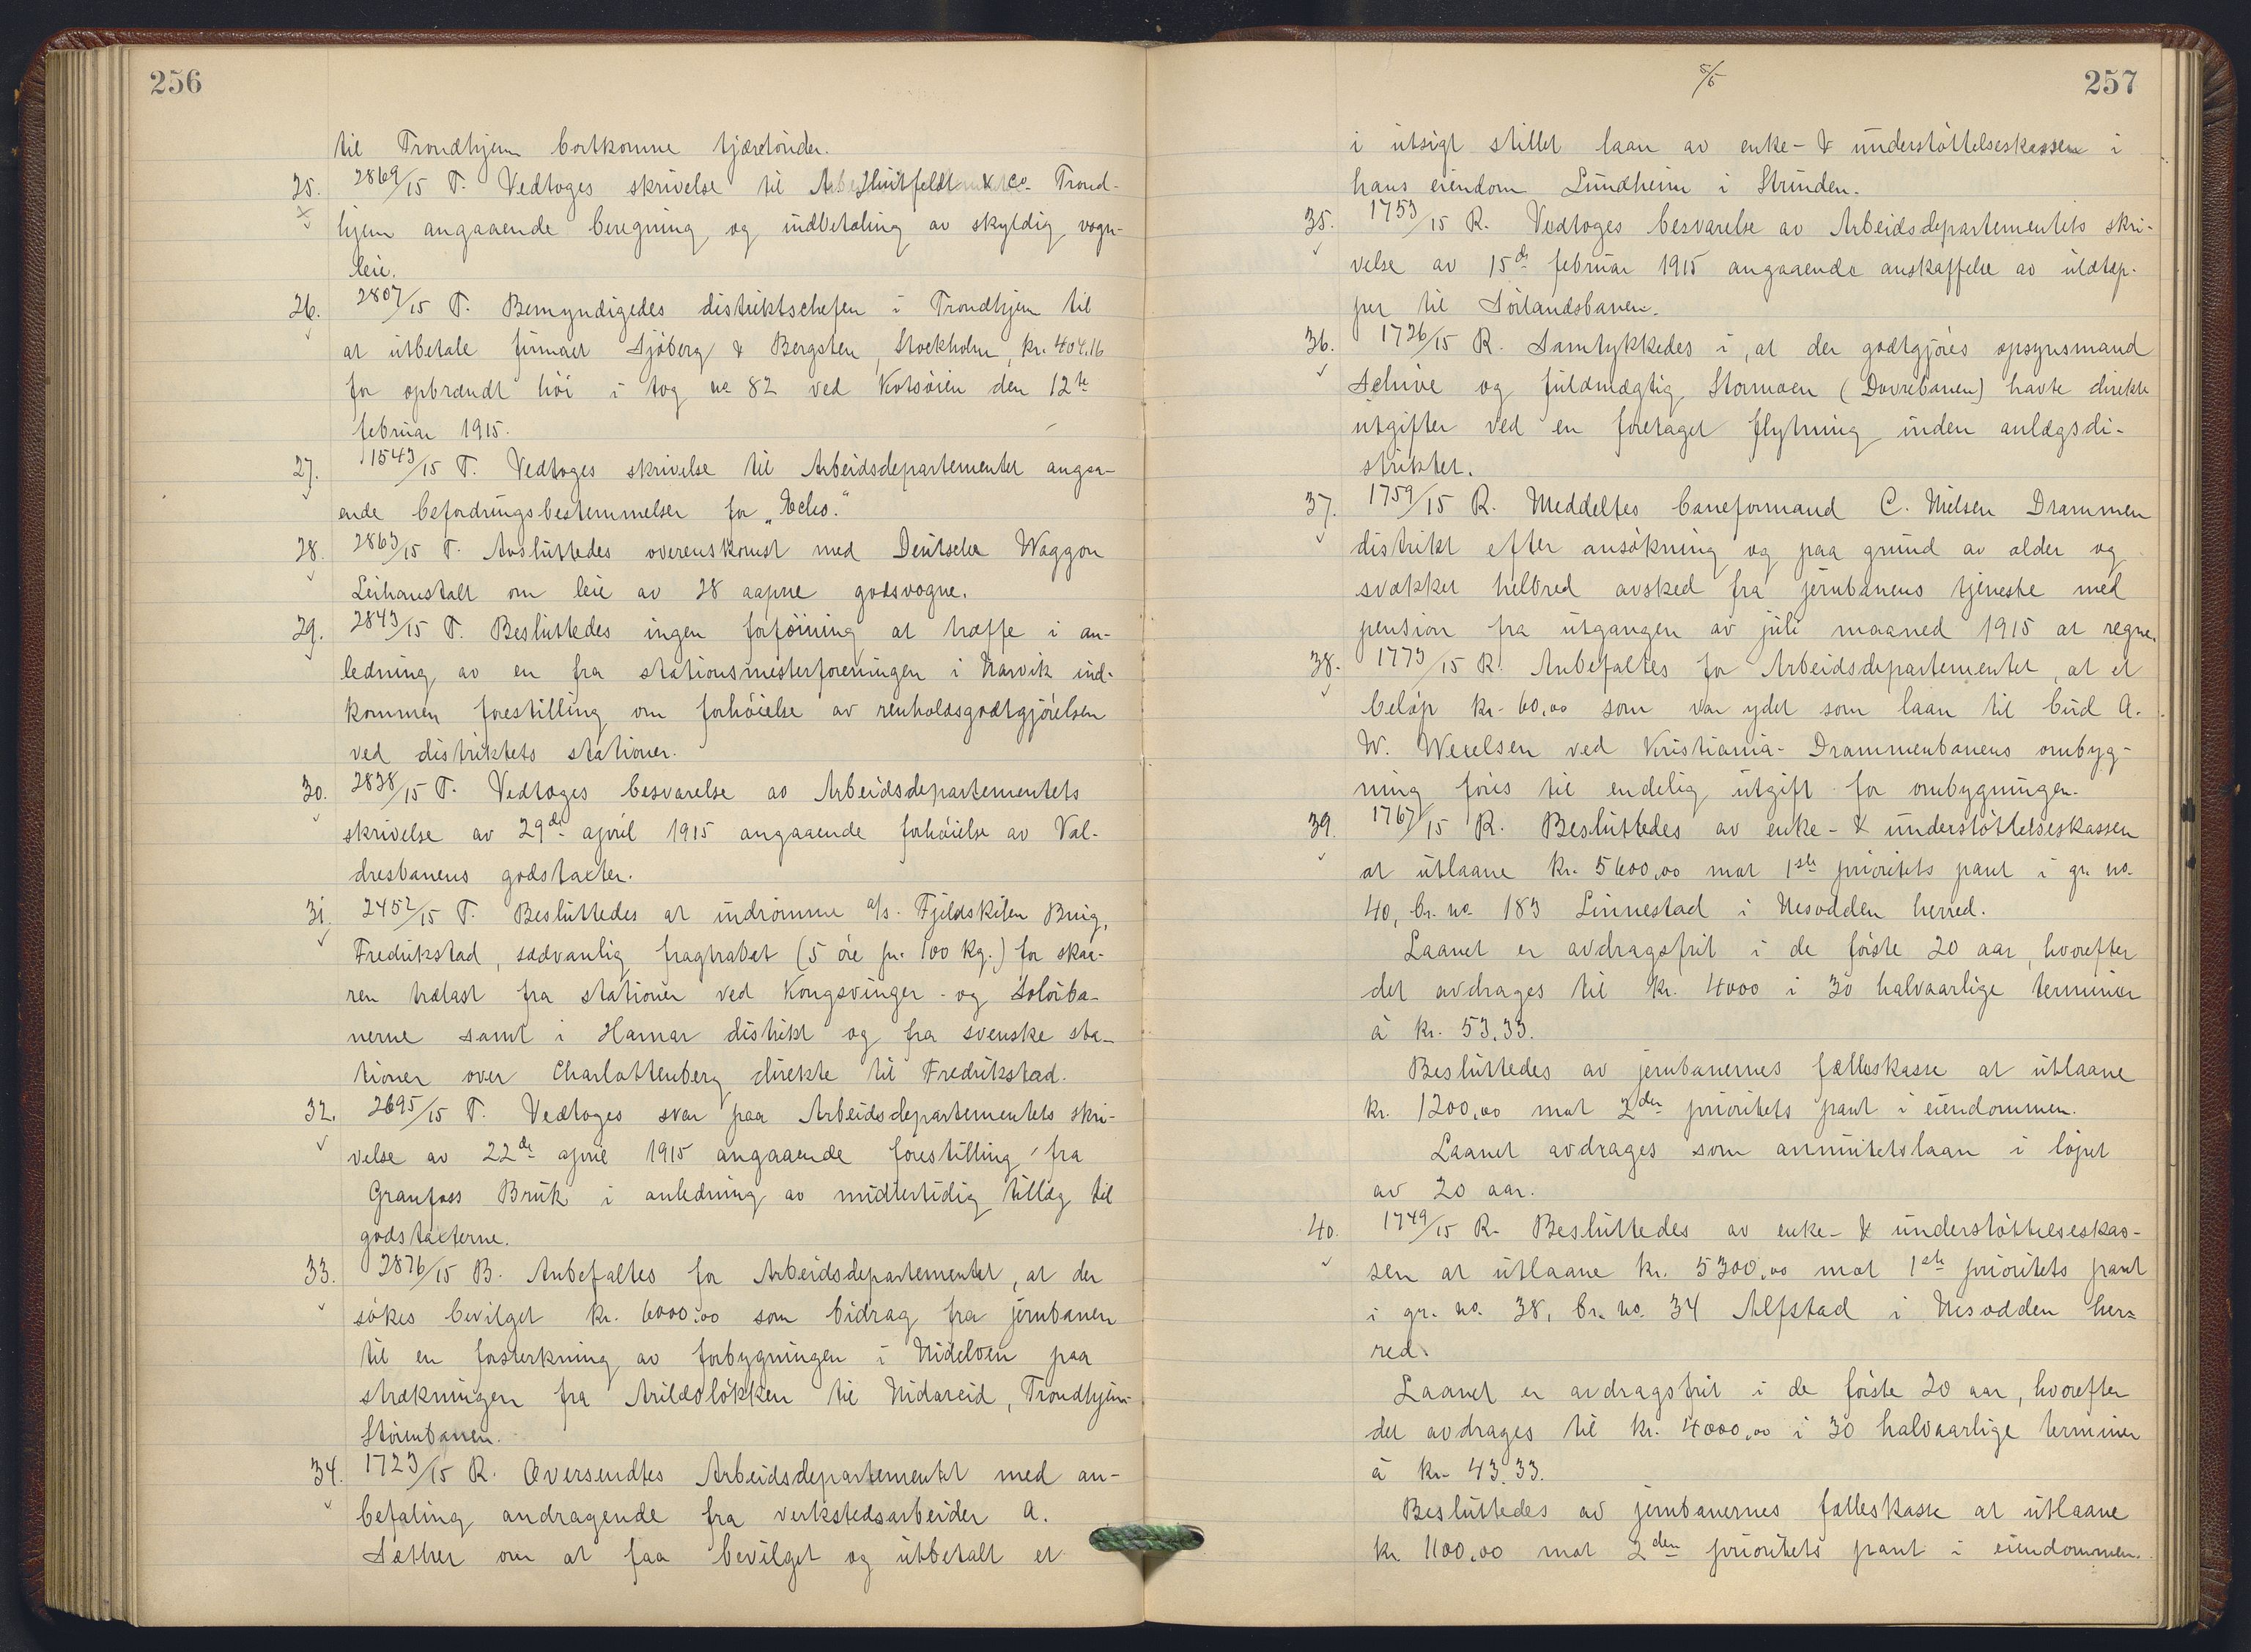 256
til Trondhjem bortkomne tjæretønder.
25. 2869/15 T. Vedtoges skrivelse til Huitfeldt & Co. Trond-
hjem angaaende beregning og indbetaling av skyldig vogn-
leie.
26. 2807/15 T. Bemyndigedes distriktschefen i Trondhjem til
at utbetale firmaet Sjöberg & Bergsten, Stockholm, kr. 404.16
for opbrændt høi i tog no 82 ved Kotsøien den 12te
februar 1915.
27. 1543/15 T. Vedtoges skrivelse til Arbeidsdepartementet angaa-
ende befordringsbestemmelser for „Echo.“
28. 2863/15 T. Avsluttedes overenskomst med Deutsche Waggon
Leihanstalt om leie av 28 aapne godsvogne.
29. 2843/15 T. Besluttedes ingen forføining at træffe i an-
ledning av en fra stationsmesterforeningen i Narvik ind-
kommen forestilling om forhøielse av renholdsgodtgjørelsen
ved distriktets stationer.
30. 2838/15 T. Vedtoges besvarelse av Arbeidsdepartementets
skrivelse av 29de april 1915 angaaende forhøielse av Val-
dresbanens godstaxter.
31. 2452/15 T. Besluttedes at indrømme a/s. Fjeldskilen Brug,
Fredrikstad, sædvanlig fragtrabat (5 øre pr. 100 kg.) for skaa-
ren trælast fra stationer ved Kongsvinger- og Solørba-
nerne samt i Hamar distrikt og fra svenske sta-
tioner over Charlottenberg direkte til Fredrikstad.
32. 2695/15 T. Vedtoges svar paa Arbeidsdepartementets skri-
velse av 22de april 1915 angaaende forestilling fra
Granfoss Bruk i anledning av midlertidig tillæg til
godstaxterne.
33. 2876/15 B. Anbefaltes for Arbeidsdepartementet, at der
søkes bevilget kr. 6000.00 som bidrag fra jernbanen
til en forsterkning av forbygningen i Nidelven paa
strækningen fra Arildsløkken til Nidareid, Trondhjem-
Størenbanen.
34. 1723/15 R. Oversendtes Arbeidsdepartementet med an-
befaling andragende fra verkstedsarbeider A.
Sæther om at faa bevilget og utbetalt et
5/5
257
i utsigt stillet laan av enke- & understøttelseskassen i
hans eiendom Lundheim i Strinden.
35. 1753/15 R. Vedtoges besvarelse av Arbeidsdepartementets skri-
velse av 15de februar 1915 angaaende anskaffelse av uldtæp-
per til Sørlandsbanen.
36. 1726/15 R. Samtykkedes i, at der godtgjøres opsynsmand
Schive og fuldmægtig Stormoen (Dovrebanen) havte direkte
utgifter ved en foretaget flytning inden anlægsdi-
striktet.
37. 1759/15 R. Meddeltes baneformand C. Nielsen Drammen
distrikt efter ansøkning og paa grund av alder og
svækket helbred avsked fra jernbanens tjeneste med
pension fra utgangen av juli maaned 1915 at regne.
38. 1773/15 R. Anbefaltes for Arbeidsdepartementet, at et
beløp kr. 60,00 som var ydet som laan til bud A.
W. Wexelsen ved Kristiania-Drammenbanens ombyg-
ning føres til endelig utgift for ombygningen.
39. 1767/15 R. Besluttedes av enke- & understøttelseskassen
at utlaane kr. 5600,00 mot 1ste prioritets pant i gr. no.
40, br. no. 183 Linnestad i Nesodden herred.
Laanet er avdragsfrit i de første 20 aar, hvorefter
det avdrages til kr. 4000 i 30 halvaarlige terminer
á kr. 53.33.
Besluttedes av jernbanernes fælleskasse at utlaane
kr. 1200,00 mot 2den prioritets pant i eiendommen.
Laanet avdrages som annuitetslaan i løpet
av 20 aar.
40. 1749/15 R. Besluttedes av enke- & understøttelseskas-
sen at utlaane kr. 5300,00 mot 1ste prioritets pant
i gr. no. 38, br. no. 34 Alfstad i Nesodden her=
red.
Laanet er avdragsfrit i de første 20 aar, hvorefter
det avdrages til kr. 4000,00 i 30 halvaarlige terminer
á kr. 43.33.
Besluttedes av jernbanernes fælleskasse at utlaane
kr. 1100,00 mot 2den prioritets pant i eiendommen.